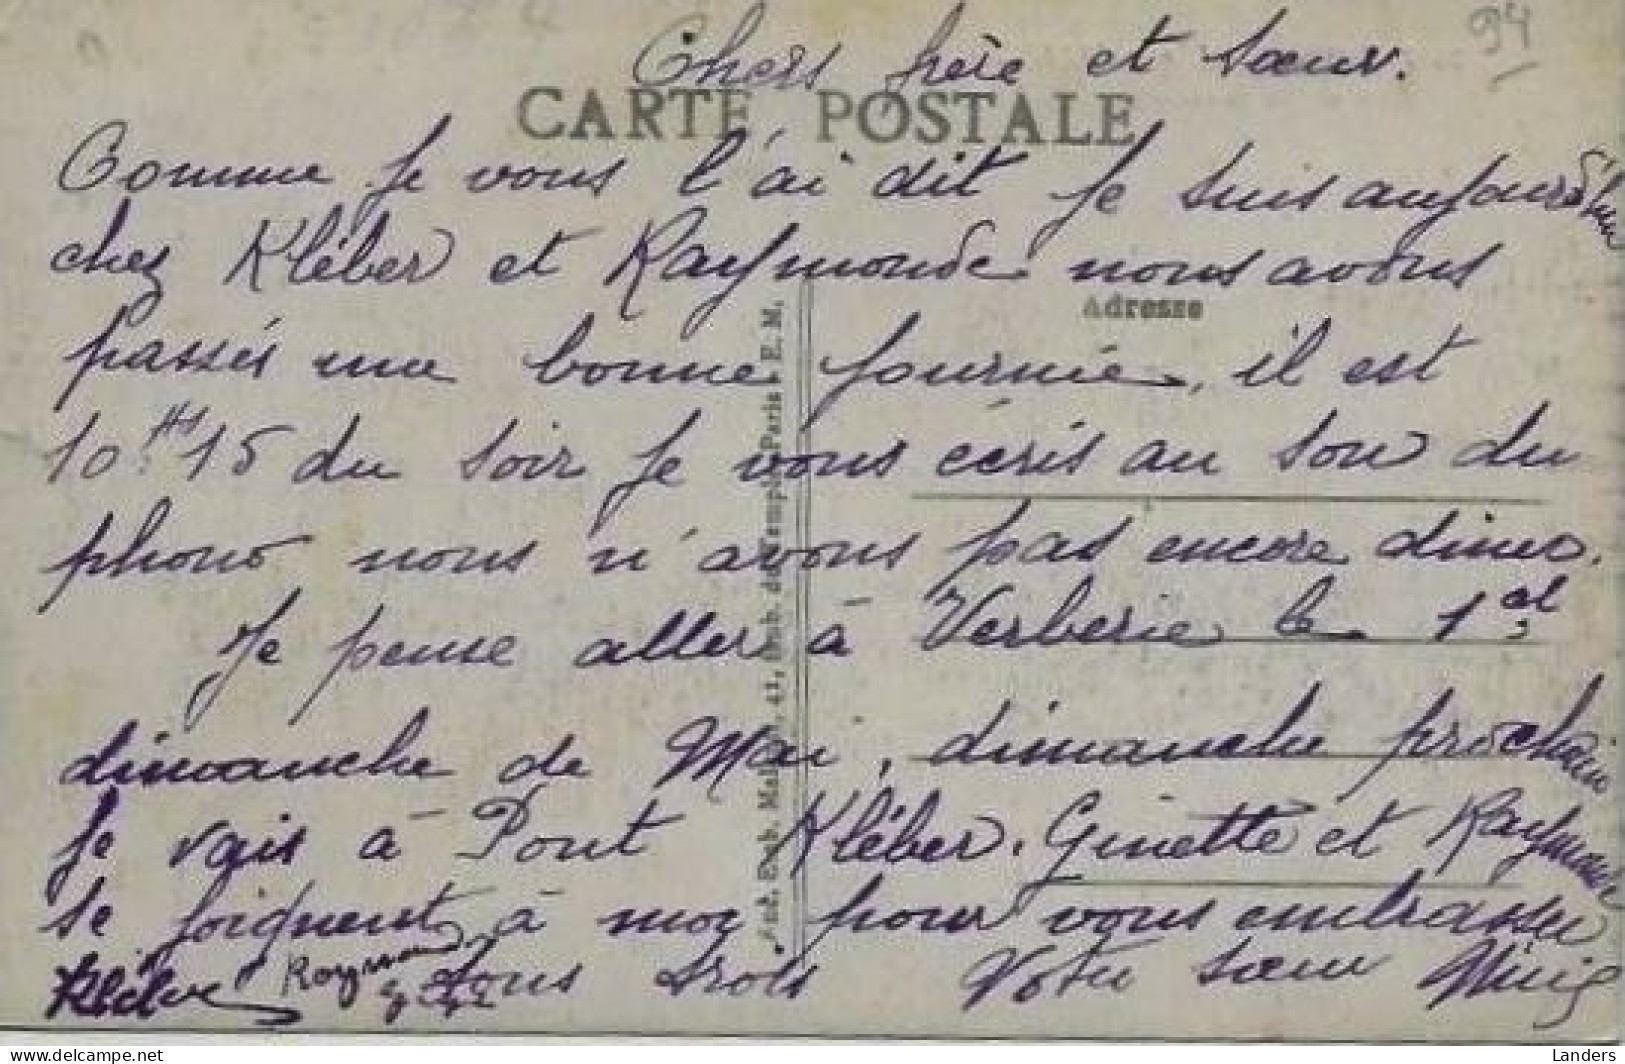 94
Chers frère et sœur.
CARTE POSTALE
Comme je vous l'ai dit je suis aujourd'hui
chez Kléber et Raymonde nous avons
Adresse
passés une bonne journée, il est
10 Hrs 15 du soir je vous écris au son du
phono nous n'avons pas encore dinés.
Je pense aller à Verberie le 1er
dimanche de Mai, dimanche prochain
je vais à Pont Kléber. Ginette et Raymonde
se joignent à moi pour vous embrasser
Kléber Raymonde tous trois Votre sœur
Anc. Etab. Paris E. M.
delcampe.net
Landers